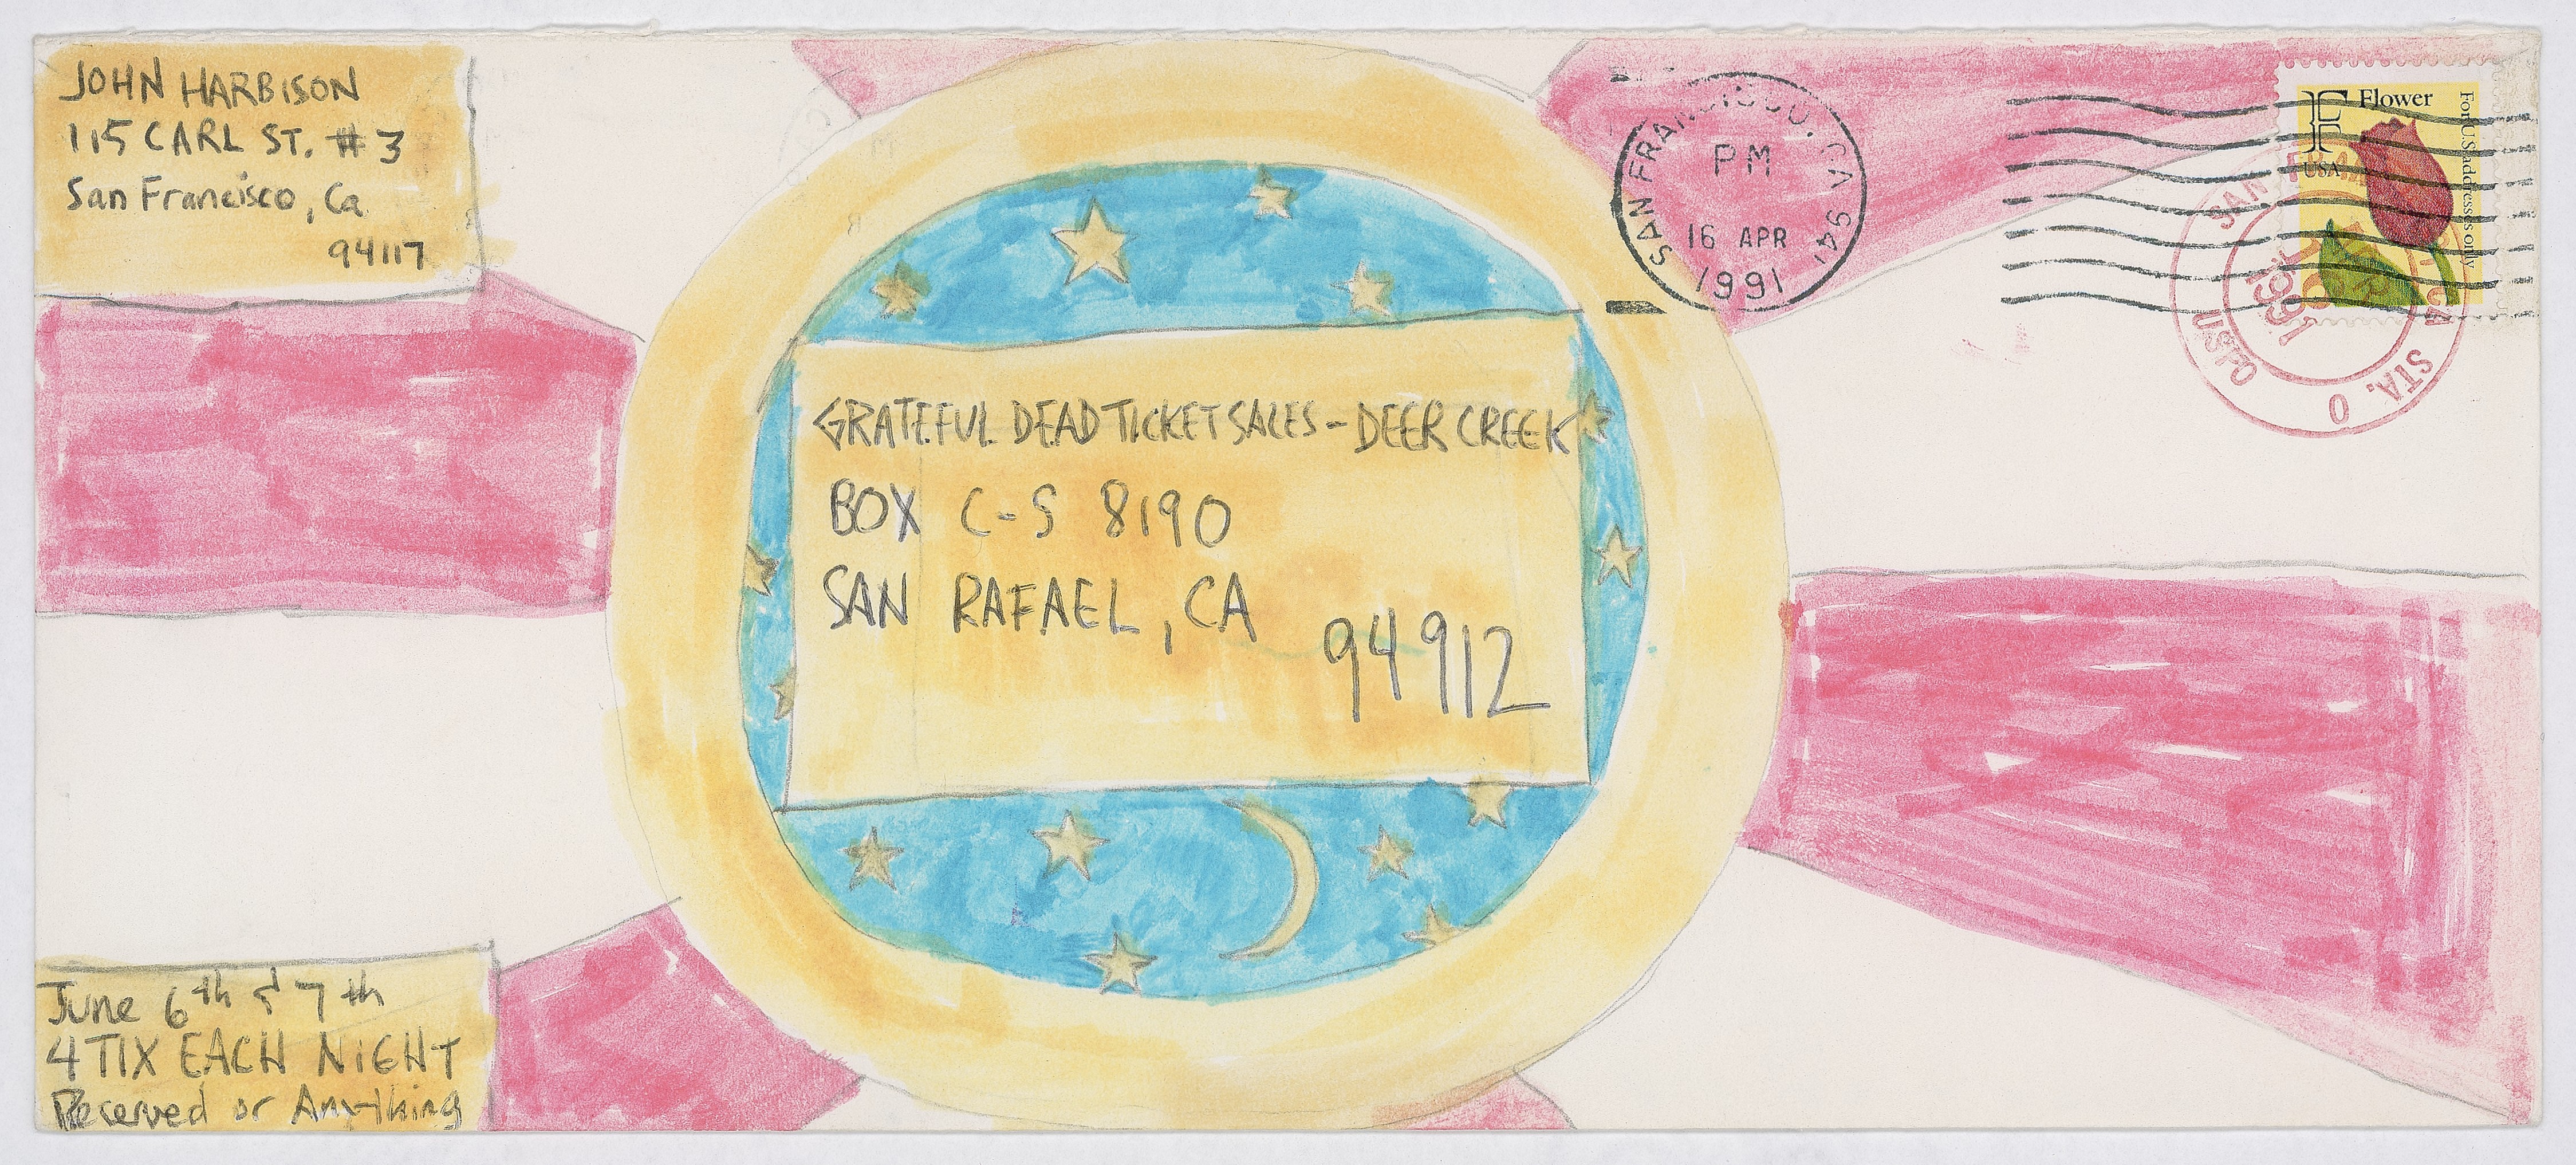 JOHN HARBISON
115 CARL ST. #3
San Francisco, Ca
94117
SAN FRANCISCO, CA 941
PM
16 APR
1991
F Flower
USA
For U.S. addresses only
SAN FRAN CA
STA. O
USPO
1991
GRATEFUL DEAD TICKET SALES - DEER CREEK
BOX C-S 8190
SAN RAFAEL, CA
94912
June 6th & 7th
4 TIX EACH NIGHT
Reserved or Anything